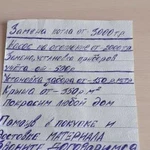 Замена котла от 3000 гр
Насос на отопление от 2000 гр
Замена, установка приборов
учёта от - 500 гр
Установка забора от - 150 гр
Крыша от - 350 м²
покрасим любой дом
Помощь в покупке и
доставке МАТЕРИАЛА